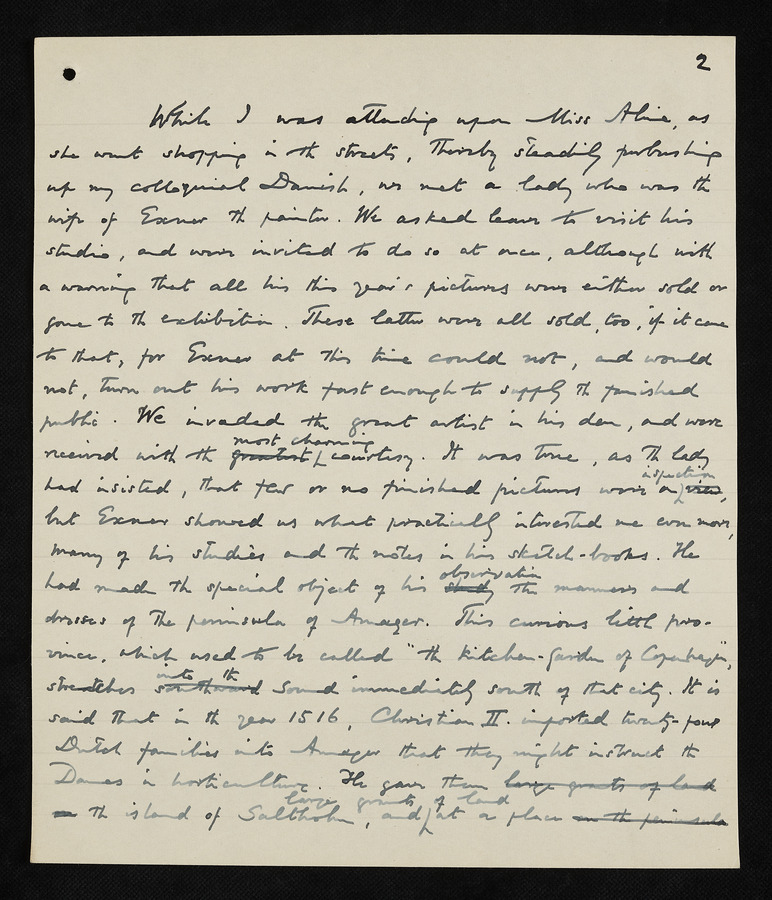 2
While I was attending upon Miss Aline, as
she went shopping in the streets, thereby steadily furbishing
up my colloquial Danish, we met a lady who was the
wife of Exner the painter. We asked leave to visit his
studio, and were invited to do so at once, although with
a warning that all his this year's pictures were either sold or
gone to the exhibition. These latter were all sold, too, if it came
to that, for Exner at this time could not, and would
not, turn out his work fast enough to supply the famished
public. We invaded the great artist in his den, and were
most charming
received with the greatest courtesy. It was true, as the lady
inspection
had insisted, that few or no finished pictures were on view,
but Exner showed us what practically interested me even more,
many of his studies and the notes in his sketch-books. He
observation
had made the special object of his study the manners and
dresses of the peninsula of Amager. This curious little pro-
vince, which used to be called "the kitchen-garden of Copenhagen",
into the
stretches southward Sound immediately south of that city. It is
said that in the year 1516, Christian II. imported twenty-four
Dutch families into Amager that they might instruct the
Danes in horticulture. He gave them large grants of land
large grants of land
on the island of Saltholm, and at a place on the peninsula